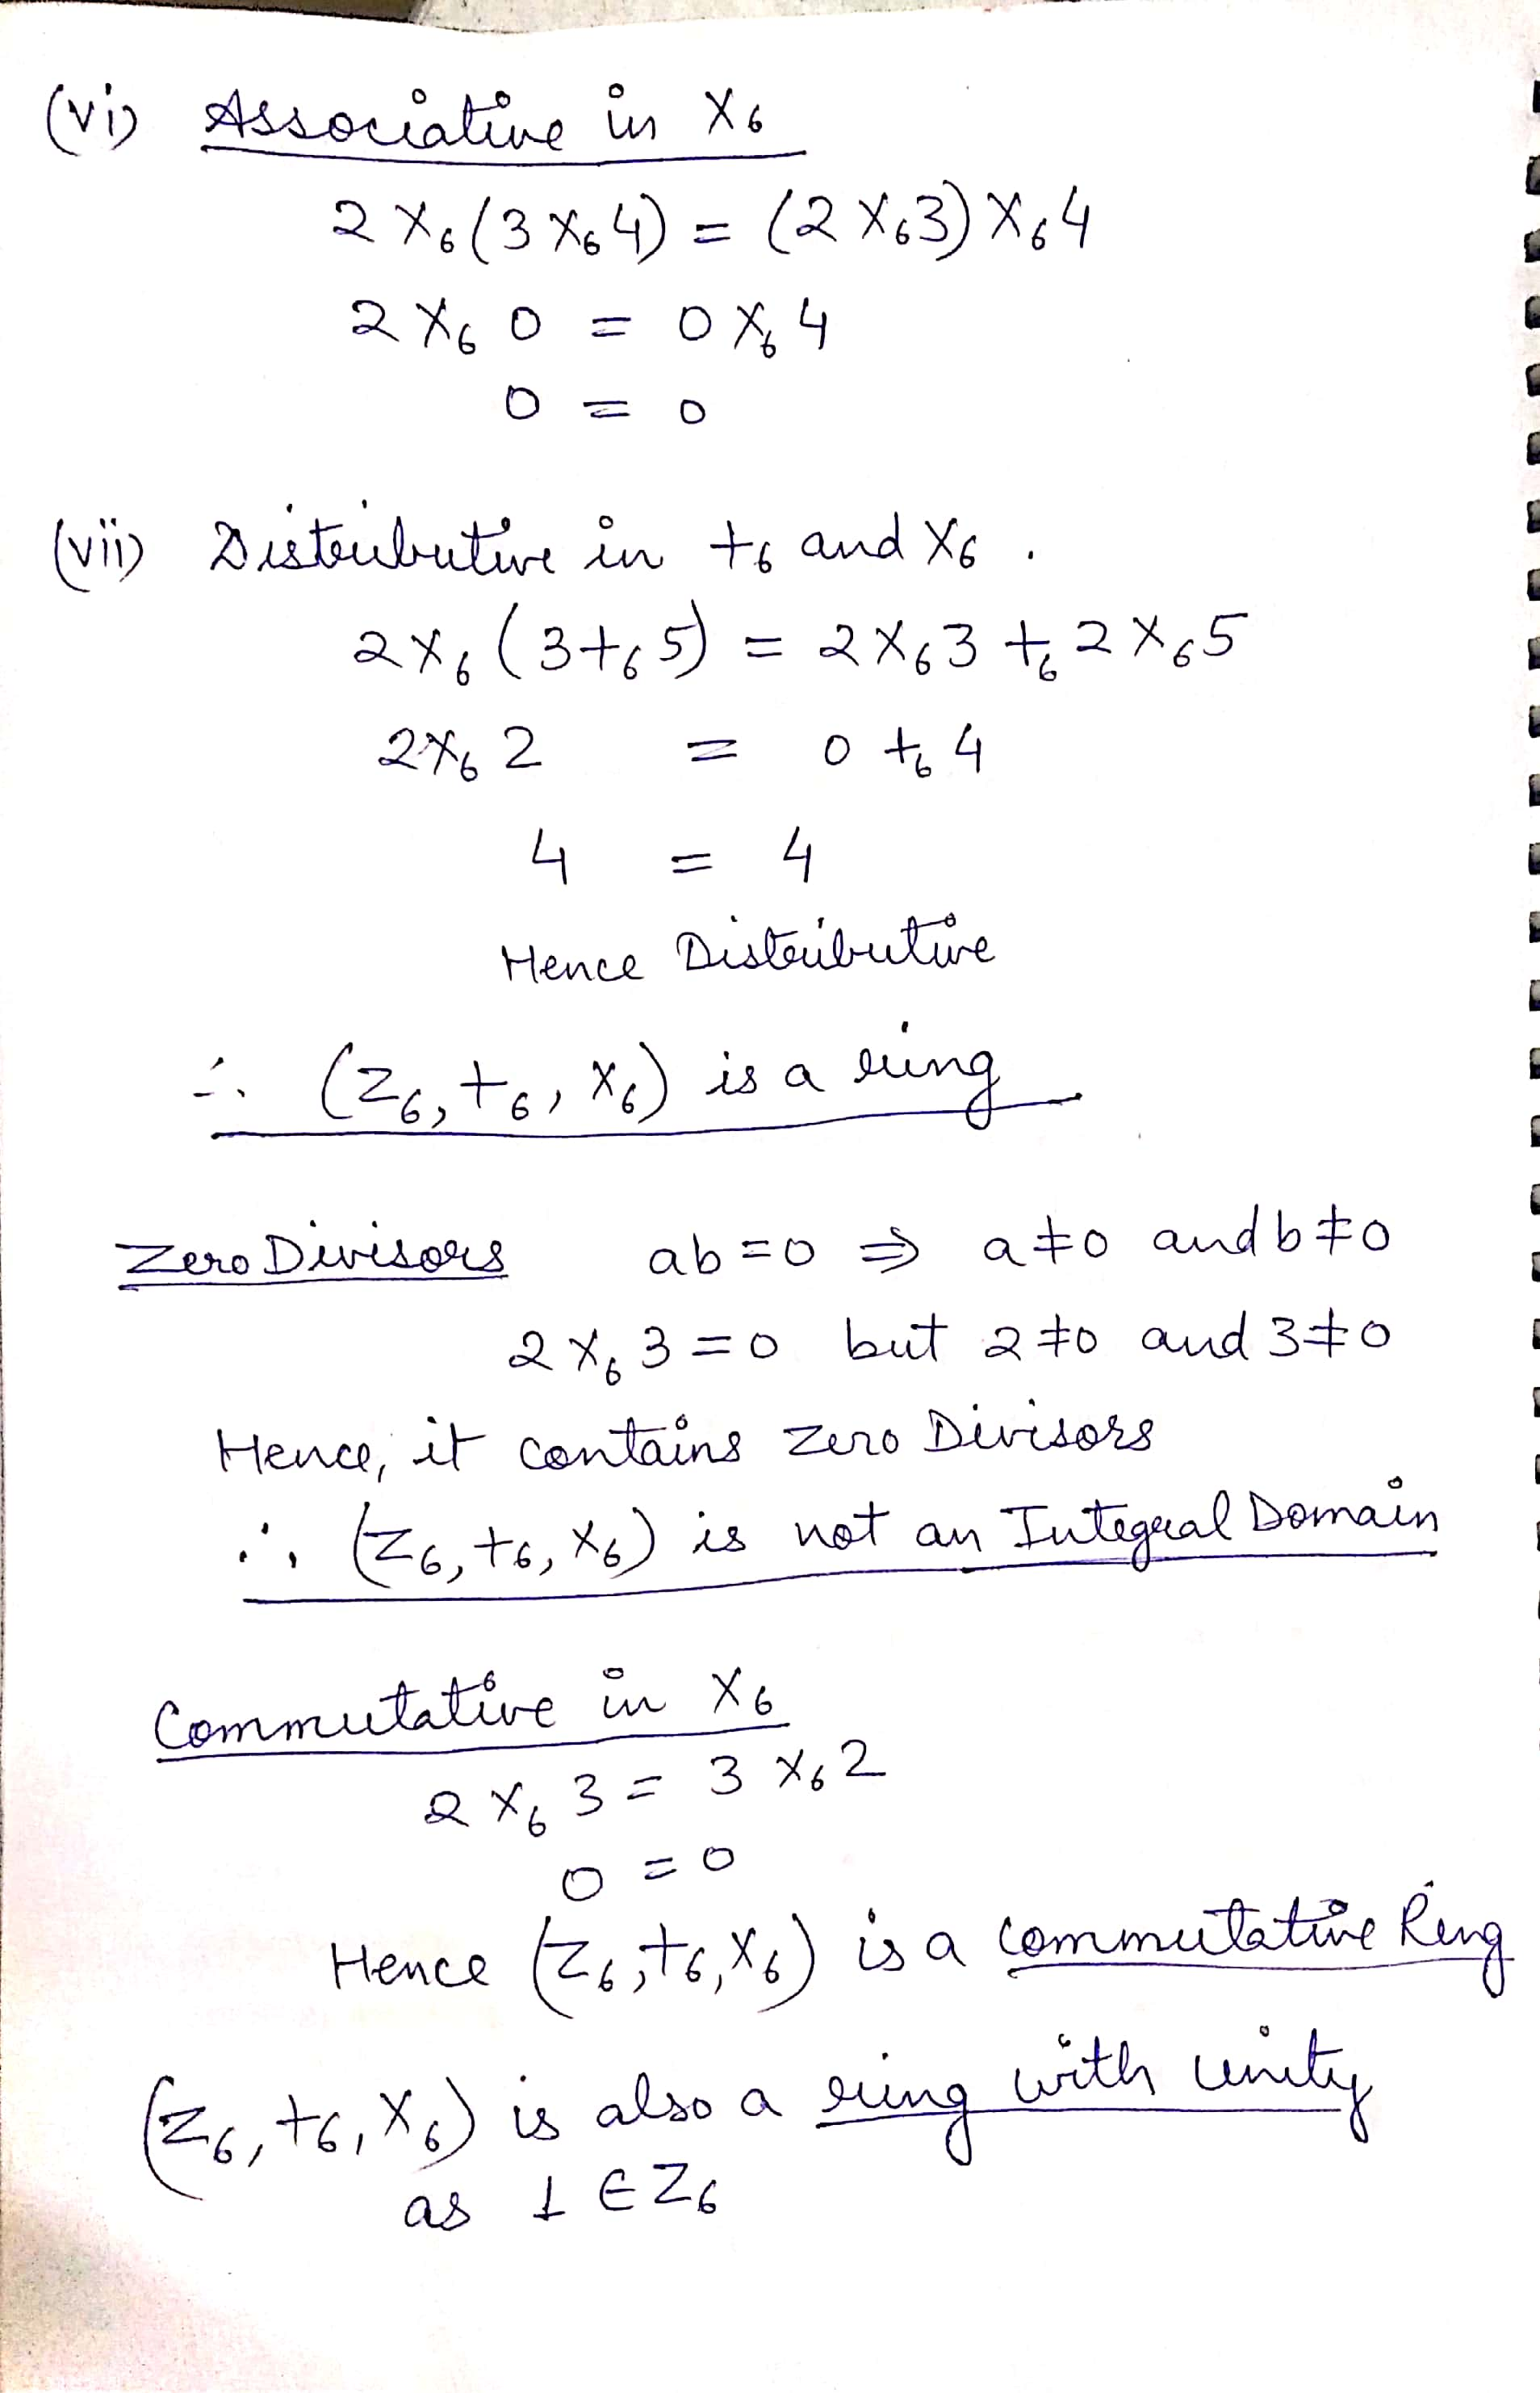 (vi) Associative in ×₆
2 ×₆ (3 ×₆ 4) = (2 ×₆ 3) ×₆ 4
2 ×₆ 0 = 0 ×₆ 4
0 = 0
(vii) Distributive in +₆ and ×₆ .
2 ×₆ (3 +₆ 5) = 2 ×₆ 3 +₆ 2 ×₆ 5
2 ×₆ 2 = 0 +₆ 4
4 = 4
Hence Distributive
∴ (Z₆, +₆, ×₆) is a ring
Zero Divisors ab = 0 ⇒ a ≠ 0 and b ≠ 0
2 ×₆ 3 = 0 but 2 ≠ 0 and 3 ≠ 0
Hence, it contains zero Divisors
∴ (Z₆, +₆, ×₆) is not an Integral Domain
Commutative in ×₆
2 ×₆ 3 = 3 ×₆ 2
0 = 0
Hence (Z₆, +₆, ×₆) is a commutative Ring
(Z₆, +₆, ×₆) is also a ring with unity
as 1 ∈ Z₆